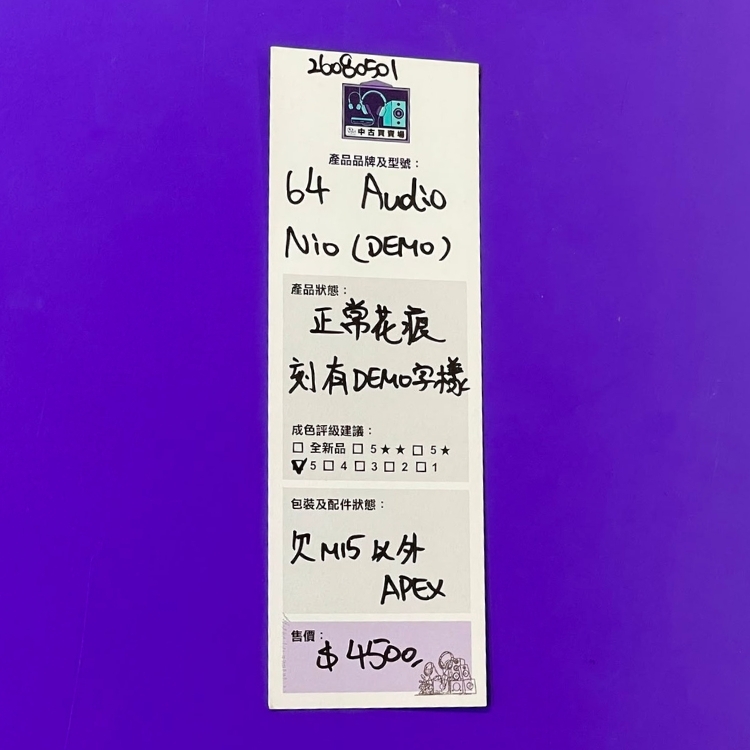 26080501
中古買賣場
產品品牌及型號：
64 Audio
Nio (DEMO)
產品狀態：
正常花痕
刻有DEMO字樣
成色評級建議：
□ 全新品 □ 5★★ □ 5★
☑ 5 □ 4 □ 3 □ 2 □ 1
包裝及配件狀態：
欠M15以外
APEX
售價：
$4500.